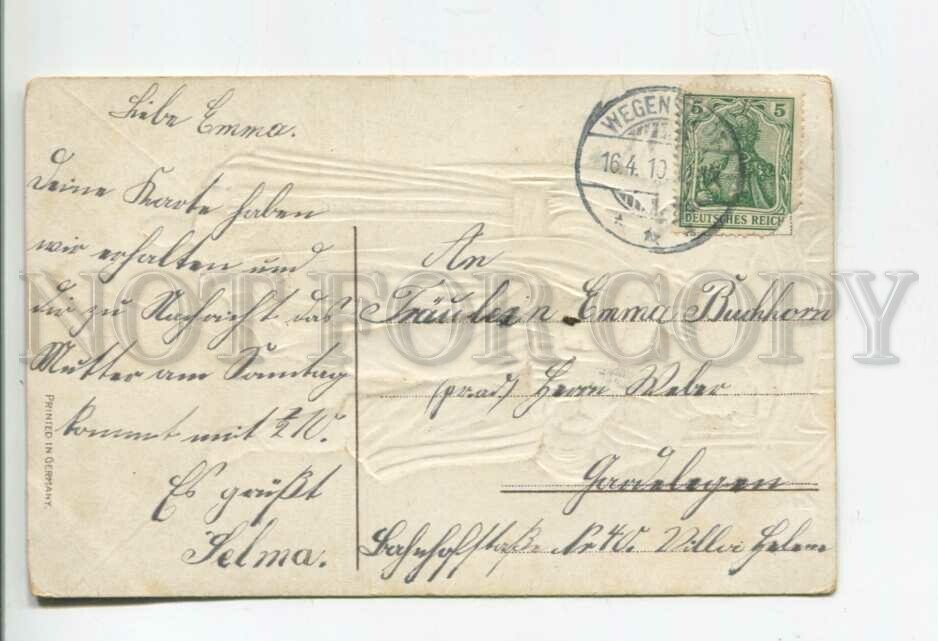 Liebe Emma.
Deine Karte haben
wir erhalten und
dir zu Nachricht das
Mutter am Sonntag
kommt mit
Es grüßt
Selma.
PRINTED IN GERMANY.
WEGENS
16.4.10
5 5
DEUTSCHES REICH
An
Fräulein Emma Buchhorn
Herrn Weber
Gardelegen
Bahnhofstraße Nr 40. Villa Helene
NOT FOR COPY